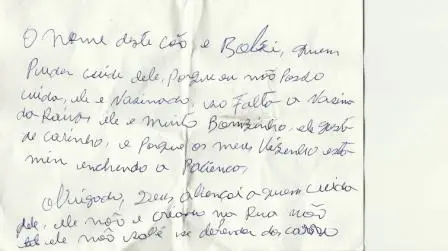 O nome deste cão e Bolei, quem
Puder cuide dele, Porque eu não Posso
cuida, ele e Vasinado, so Falta a Vasina
da Raiva, ele e muito Bomzinho, ele gosta
de carinho, e Porque os meus Vizinho esta
min enchendo a Paciencia
Obrigado, Deus abençoi a quem cuida
dele, ele não e criado na Rua não
ele não sabe se defender dos carros